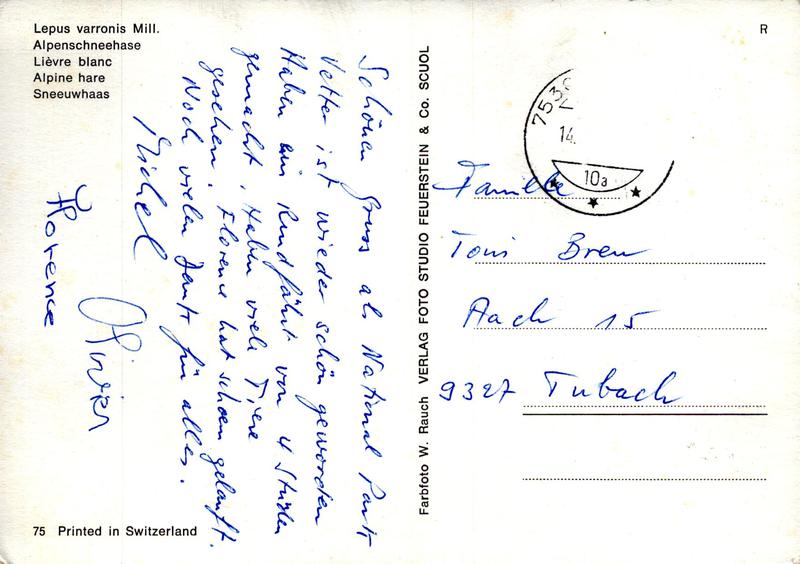 Lepus varronis Mill.
Alpenschneehase
Lièvre blanc
Alpine hare
Sneeuwhaas
R
Schönen Gruss als National Park
Vetter ist wieder schön geworden
Haben ein Rundfährt von 4 Stunden
gemacht. Haben viele Tiere
gesehen. Florence hat schoen gelauft.
Noch vielen Dank für alles.
Michel
Olivier
Florence
75 Printed in Switzerland
Farbfoto W. Rauch VERLAG FOTO STUDIO FEUERSTEIN & Co. SCUOL
753
14.
10a
Familie
Toni Breu
Aach 15
9327 Tubach